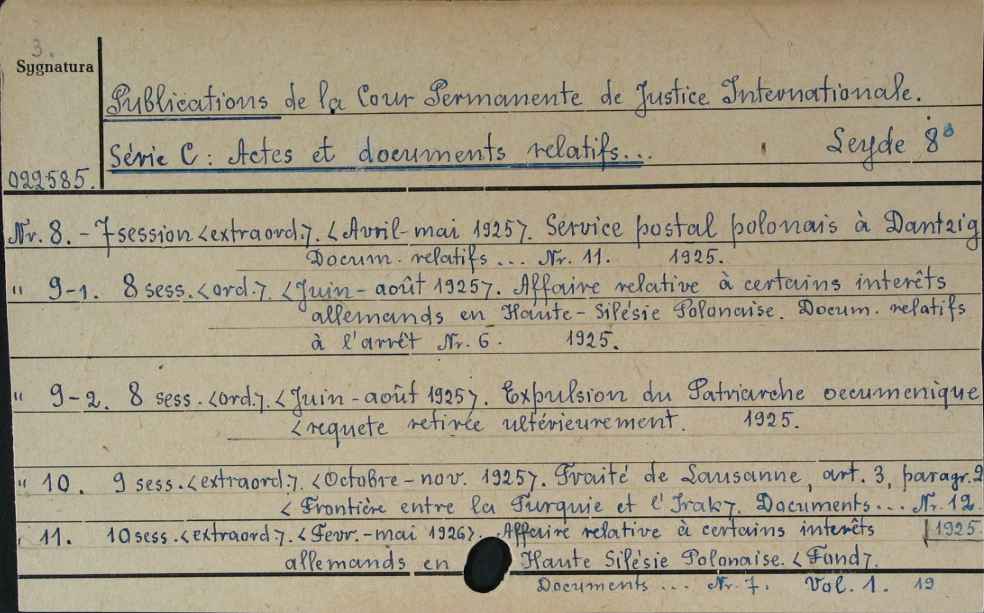 3.
Sygnatura
Publications de la Cour Permanente de Justice Internationale.
Série C: Actes et documents relatifs... Leyde 8°
022585.
Nr. 8. - 7 session <extraord.>. <Avril-mai 1925>. Service postal polonais à Dantzig
Docum. relatifs ... Nr. 11. 1925.
" 9-1. 8 sess. <ord.>. <Juin - août 1925>. Affaire relative à certains interêts
allemands en Haute-Silésie Polonaise. Docum. relatifs
à l'arrêt Nr. 6. 1925.
" 9-2. 8 sess. <ord.>. <Juin - août 1925>. Expulsion du Patriarche oecumenique
<requete retirée ultérieurement. 1925.
" 10. 9 sess. <extraord.>. <Octobre - nov. 1925>. Traité de Lausanne, art. 3, paragr. 2
<Frontière entre la Turquie et l'Irak>. Documents... Nr. 12.
1925.
" 11. 10 sess. <extraord.>. <Fevr. - mai 1926>. Affaire relative à certains interêts
allemands en Haute Silésie Polonaise. <Fond>.
Documents ... Nr. 7. Vol. 1. 19